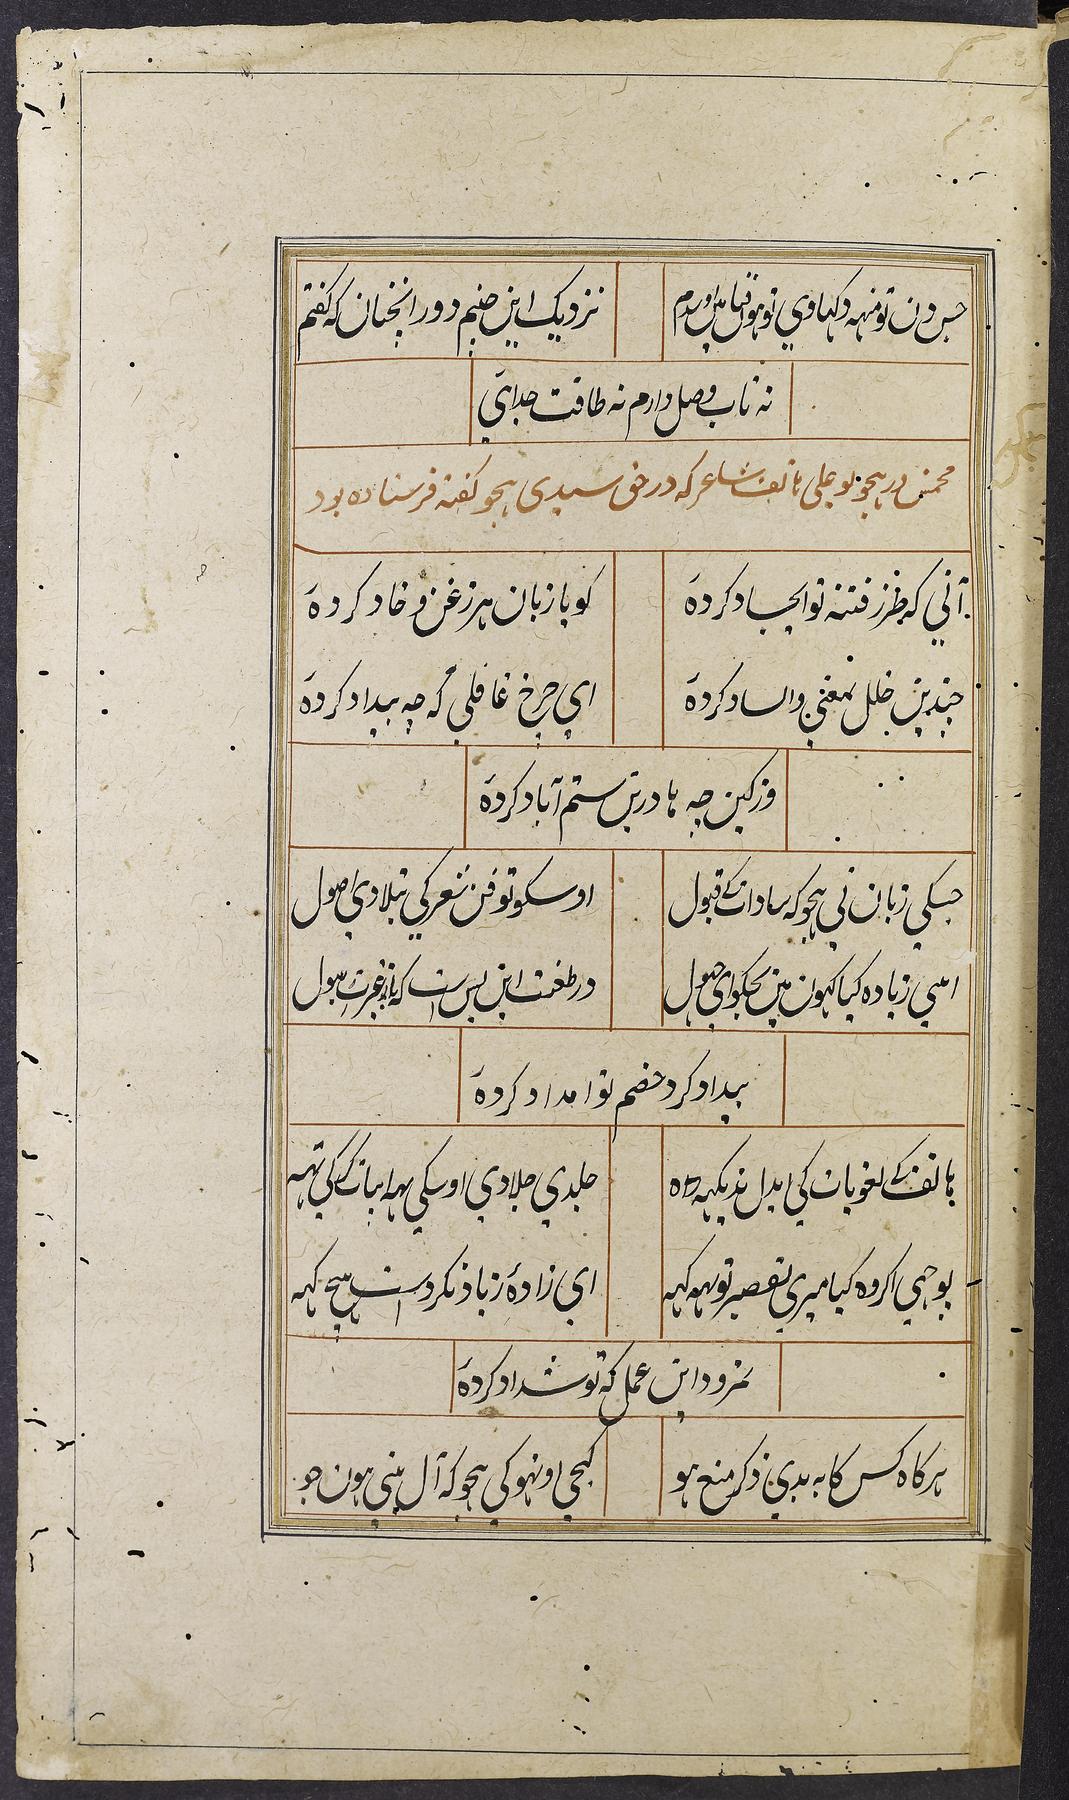 جس دن تو منہہ دکہاوي تو ہو قیامت اوس دم نزدیک این چنینم دور آنچنان که گفتم
نه تاب وصل دارم نه طاقت جدائي
مخمس در هجو بو علی هاتف شاعر که در حق سیدی هجو گفته فرستاده بود
آني که طرز فتنه تو ایجاد کردهٔ گویا زبان هرزغن و خاد کردهٔ
چندین خلل بمعني والساد کردهٔ اي چرخ غافلي که چه بیداد کردهٔ
وز کین چه ها درین ستم آباد کردهٔ
جسکي زبان ني هجو که سادات کے قبول اوسکو تو فن شعر کي بتلا دي اصول
اسي زیاده کیا کہون مین تجکو اي جہول در طعنت این بس است که با عترت رسول
بیداد کرد خصم تو امداد کردهٔ
هاتف کے لغویات کي ابدل نہ دیکہہ جلدي جلا دي اوسکي یہه ابیات کر کي تہہ
پوچہي اگر وه کیا میري تقصیر تو یہه کہہ اي زادهٔ زیاد نکردست هیچ گہه
نمرود این عمل که تو شداد کردهٔ
هر گاه کس کا به بدي ذکر منع هو کیجي اونہو کي هجو که آل نبي هون جو